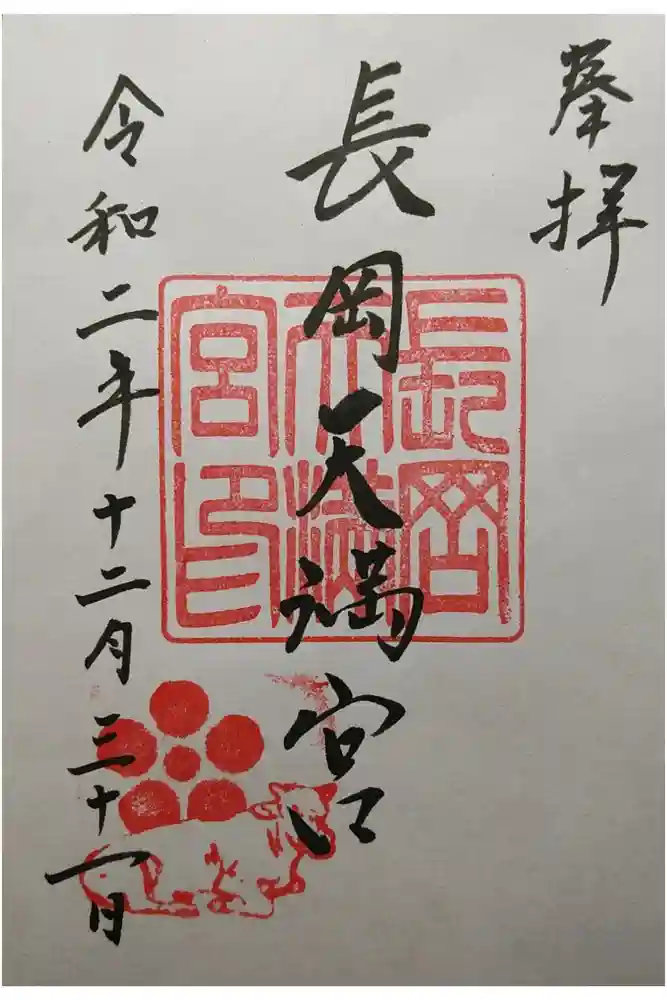 奉拝
長岡天満宮
長岡
天満
宮印
令和二年十二月三十一日